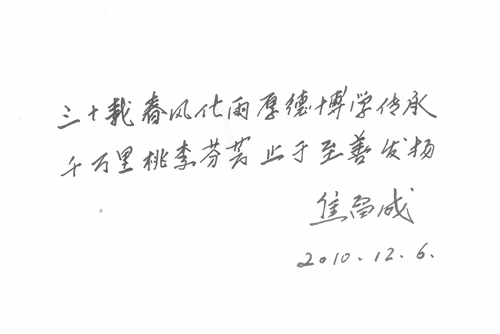 三十载春风化雨厚德博学传承
千万里桃李芬芳止于至善发扬
焦留成
2010.12.6.